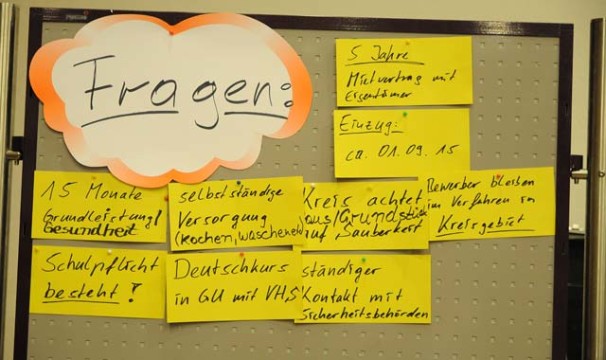 Fragen:
5 Jahre
Mietvertrag mit
Eigentümer
Einzug:
ca. 01.09.15
15 Monate
Grundleistung/
Gesundheit
selbstständige
Versorgung
(kochen, waschen etc)
Kreis achtet
aus/Grundstück
auf Sauberkeit
Bewerber bleiben
im Verfahren im
Kreisgebiet
Schulpflicht
besteht !
Deutschkurs
in GU mit VHS
ständiger
Kontakt mit
Sicherheitsbehörden